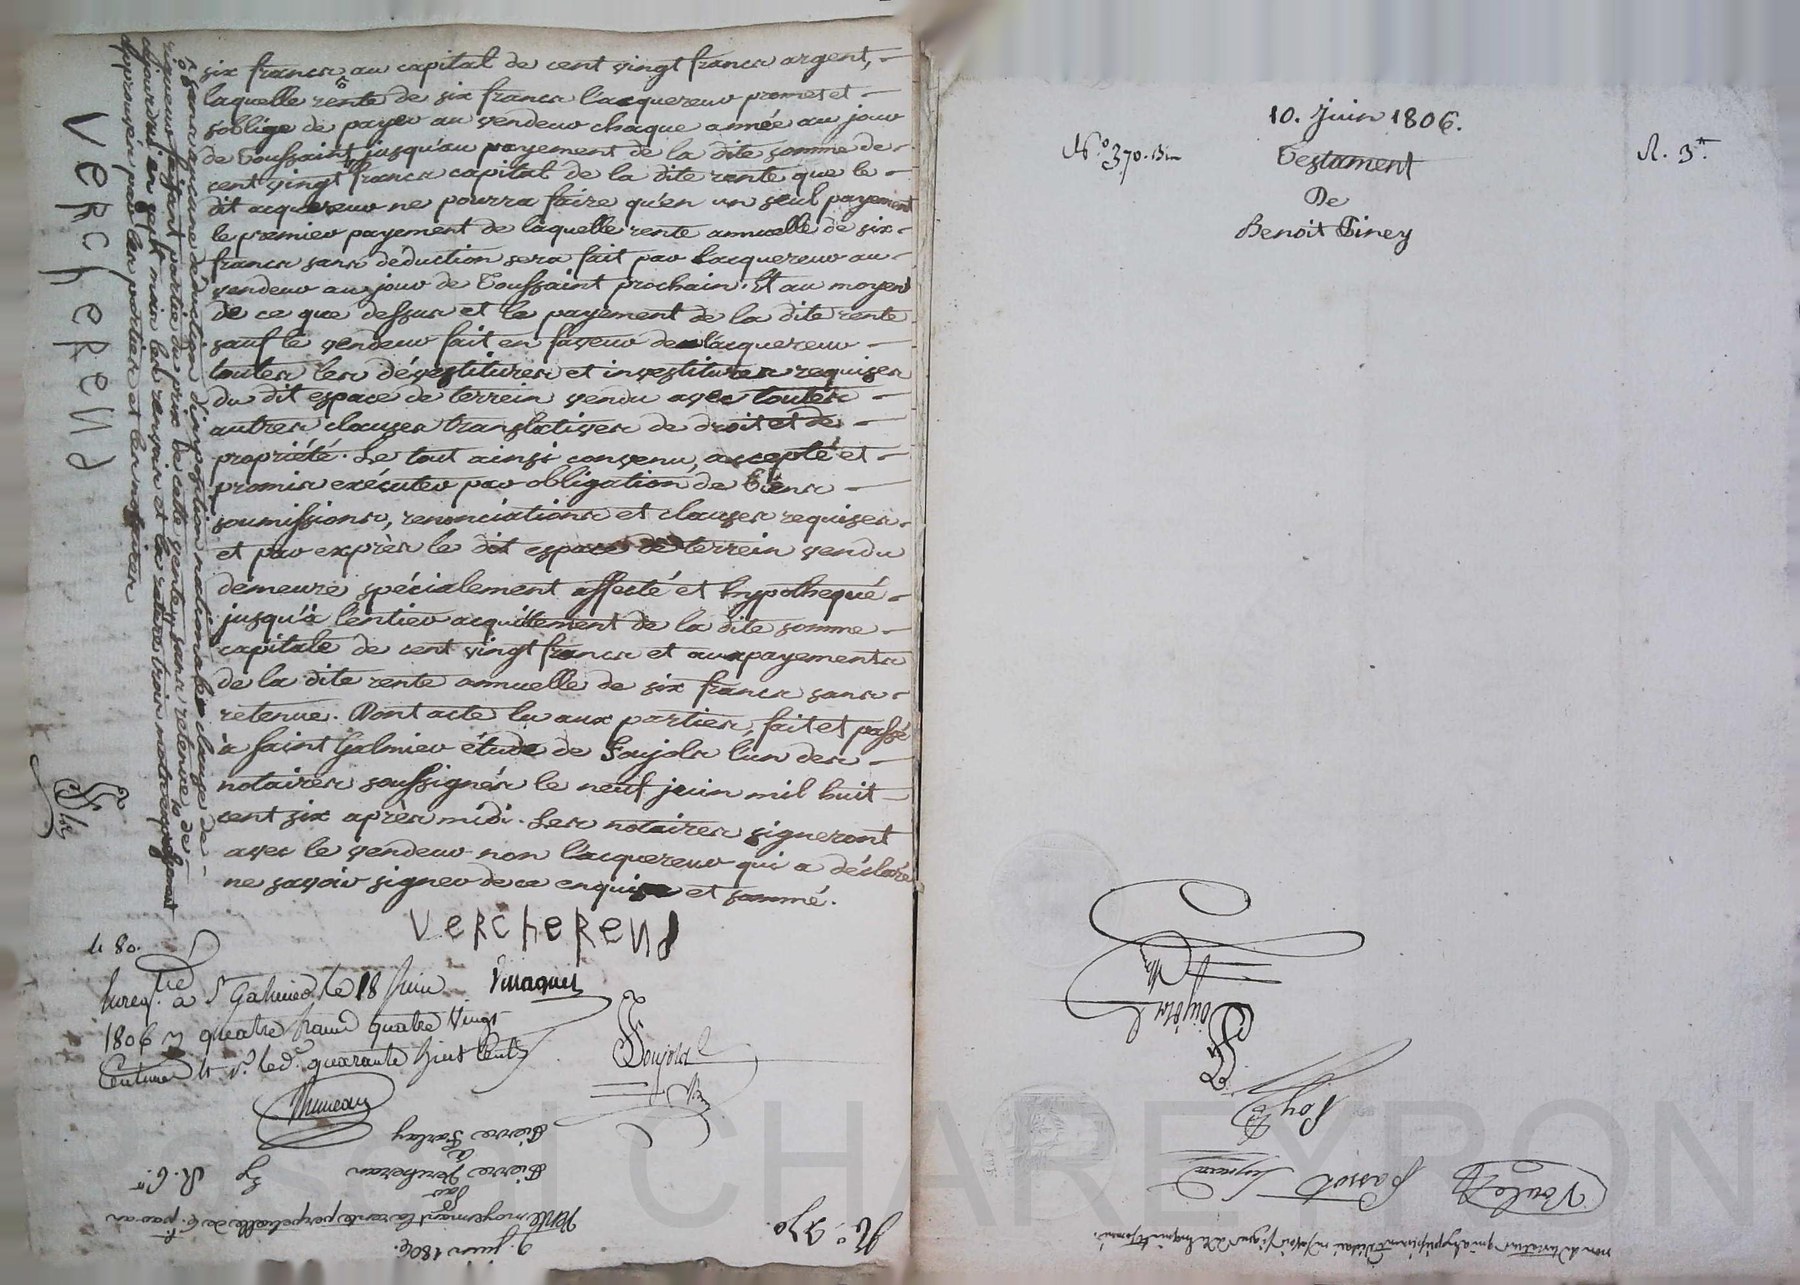 six francs au capital de cent vingt francs argent,
laquelle rente de six francs l'acquereur promet et
s'oblige de payer au vendeur chaque année au jour
de Toussaint jusqu'au payement de la dite somme de
cent vingt francs capital de la dite rente que le
dit acquereur ne pourra faire qu'en un seul payement
le premier payement de laquelle rente annuelle de six
francs sans déduction sera fait par l'acquereur au
vendeur au jour de Toussaint prochain. Et au moyen
de ce que dessus et le payement de la dite rente
sauf le vendeur fait en faveur de l'acquereur
toutes les dévestitures et investitures requises
du dit espace de terrein vendu avec toutes
autres clauses translatives de droit et de
propriété. Le tout ainsi convenu, accepté et
promis exécuter par obligation de biens
soumissions, renonciations et clauses requises
et par exprès le dit espace de terrein vendu
demeure spécialement affecté et hypothequé
jusqu'à l'entier acquittement de la dite somme
capitale de cent vingt francs et aux payements
de la dite rente annuelle de six francs sans
retenue. Dont acte lu aux parties, fait et passé
à Saint Galmier étude de Soujols l'un des
notaires soussignés le neuf juin mil huit
cent six après midi. Les notaires signeront
avec le vendeur non l'acquereur qui a déclaré
ne savoir signer de ce enquis et sommé.
VERCHEREND
sans aucune déduction d'imposition nationale clause de
rigueur faisant partie du prix de cette vente, sans retenue
aujourd'hui en sept main les renvois et la rature trois mots
approuvés par les parties et les notaires
VERCHEREND
4 80.
Enreg.tré à St Galmier, le 18 Juin
1806 quatre francs quatre Vingt
Centimes quarante huit Cent.
Soujols
N.re
9. juin 1806.
Vente moyennant la rente perpétuelle de 6.ff par an
Par
Pierre Vercheran
à
Pierre Farlay
N.o 370.
10. Juin 1806.
N.o 370. Bis
R. 3.ff
Testament
De
Benoit Piney
Soujols
N.re
Pascal CHAREYRON